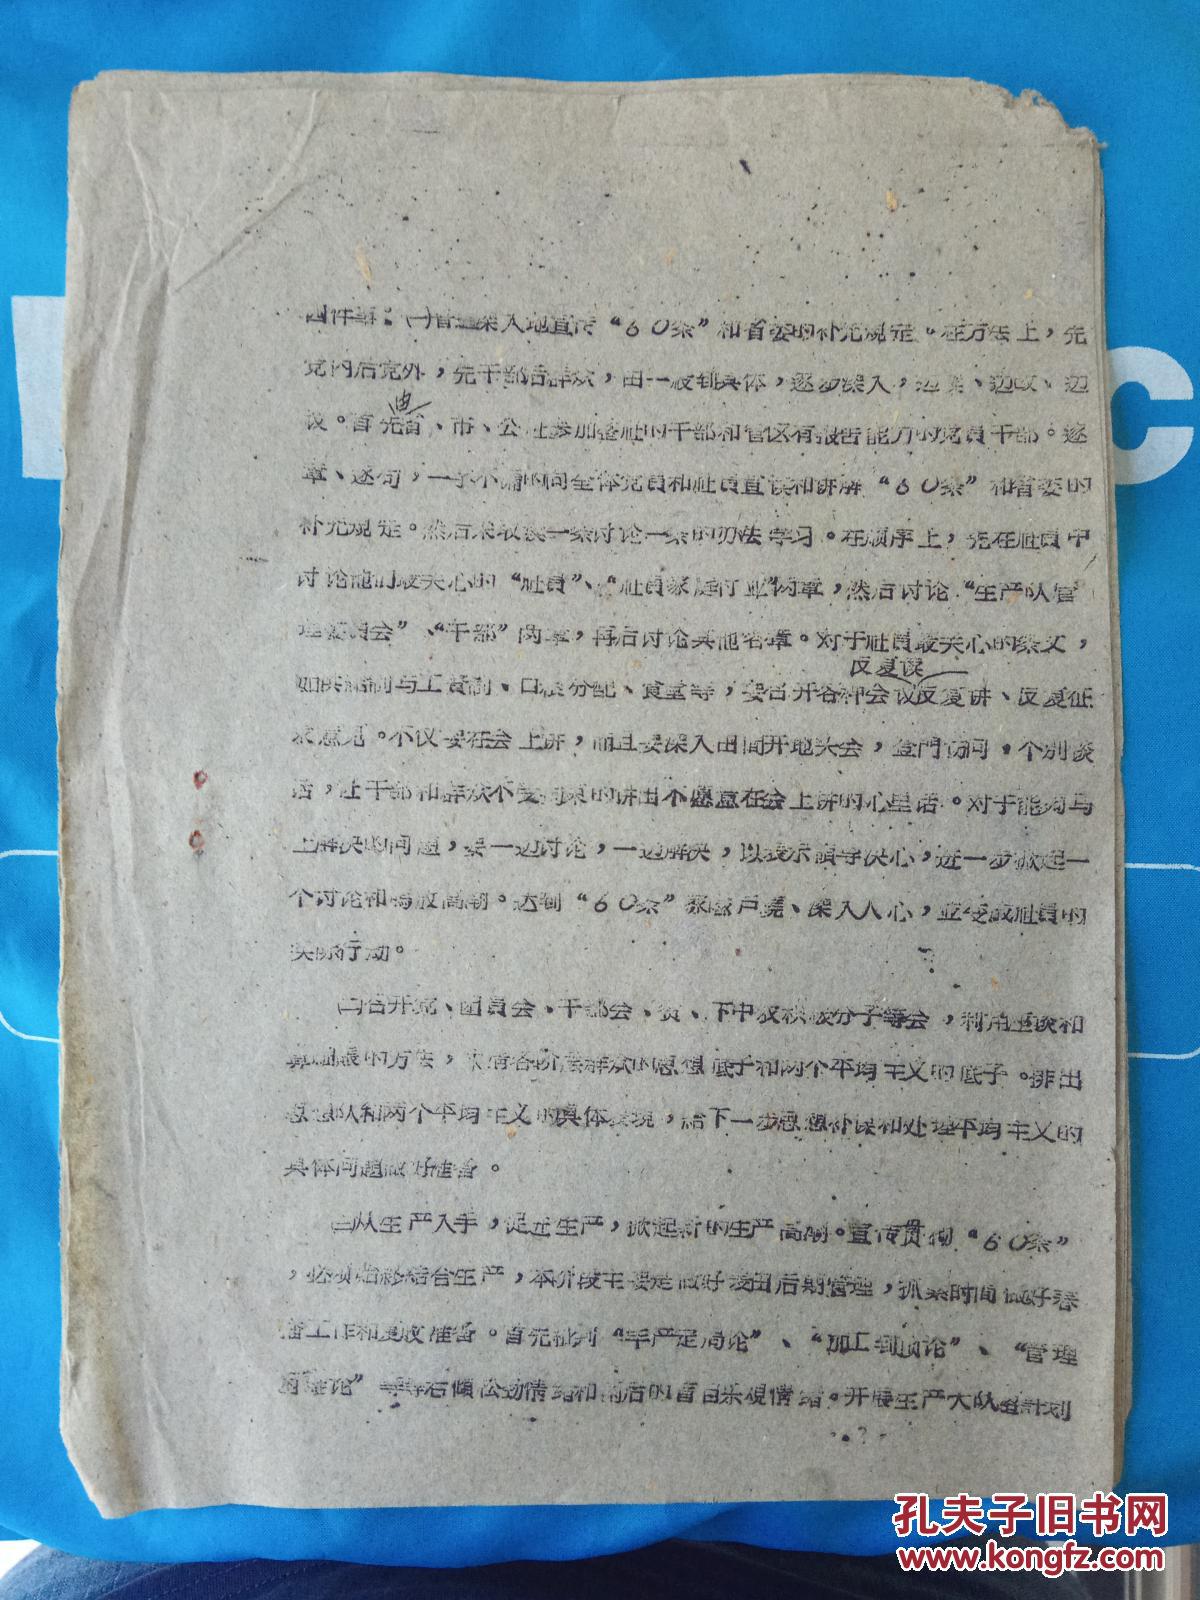 四件事：(一)普遍深入地宣传“60条”和省委的补充规定。在方法上，先
党内后党外，先干部后群众，由一般到具体，逐步深入，边        、边
议。首先由省、市、公社参加整社的干部和管区有报告能力的党员干部。逐
章、逐句，一字不漏的向全体党员和社员宣读和讲解“60条”和省委的
补充规定。然后采取读一条讨论一条的办法学习。在顺序上，先在社员中
讨论他们最关心的“社员”、“社员家庭付业”两章，然后讨论“生产队管
理委员会”、“干部”两章，再后讨论其他各章。对于社员最关心的条文，
反复读
如供给制与工资制、口粮分配、食堂等，要召开各种会议反复讲、反复征
求意见。不仅要在会上讲，而且要深入田间开地头会，登門访问，个别谈
话，让干部和群众不受拘束的讲出不愿意在会上讲的心里话。对于能夠马
上解决的问题，要一边讨论，一边解决，以表示領导决心，进一步掀起一
个讨论和鸣放高潮。达到“60条”家喻户晓、深入人心，並变成社員的
实际行动。
(二)召开党、团員会、干部会、贫、下中农积极分子等会，利用座谈和
的方法，      清各阶层群众的思想底子和两个平均主义的底子。排出
思想队和两个平均主义的具体表現，給下一步思想补课和处理平均主义的
具体问题做好准备。
(三)从生产入手，促进生产，掀起新的生产高潮。宣传贯彻“60条”
，必须始终结合生产，本阶段主要是做好麦田后期管理，抓紧时间做好春
播工作和夏收准备。首先批判“年产定局论”、“加工到顶论”、“管理
论”等等右傾松劲情绪和雨后的盲目乐观情绪。开展生产大队    計划
孔夫子旧书网
www.kongfz.com